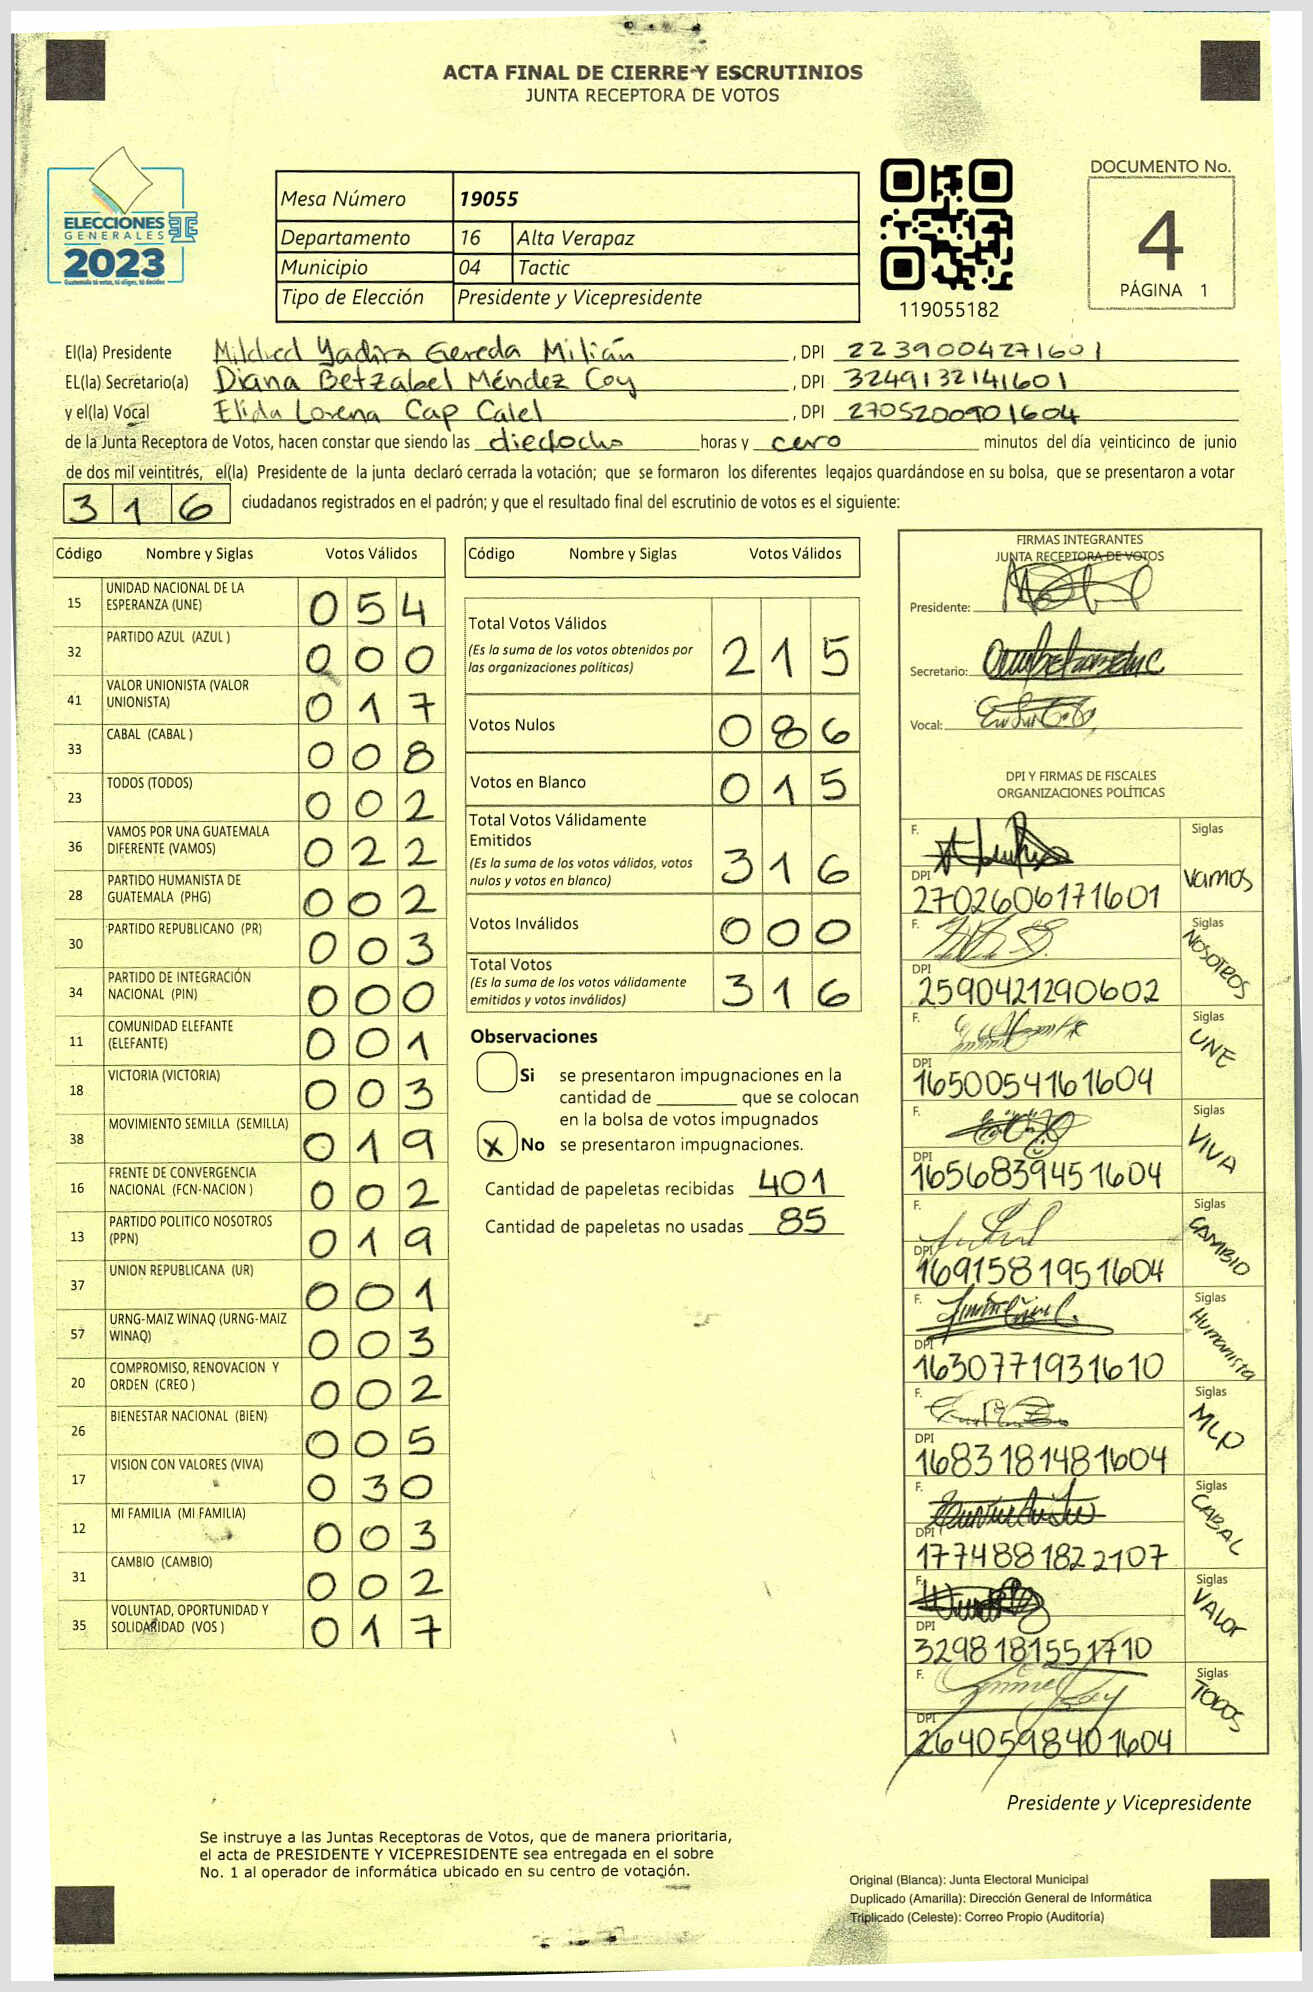 ACTA FINAL DE CIERRE Y ESCRUTINIOS
JUNTA RECEPTORA DE VOTOS
ELECCIONES
GENERALES
2023
Guatemala tú votas, tú eliges, tú decides
Mesa Número 19055
Departamento 16 Alta Verapaz
Municipio 04 Tactic
Tipo de Elección Presidente y Vicepresidente
119055182
DOCUMENTO No.
4
PÁGINA 1
El(la) Presidente Mildred Yadira Gereda Milián , DPI 2239004271601
EL(la) Secretario(a) Diana Betzabel Méndez Coy , DPI 3249132141601
y el(la) Vocal Elida Lorena Cap Calel , DPI 2705200901604
de la Junta Receptora de Votos, hacen constar que siendo las dieciocho horas y cero minutos del día veinticinco de junio
de dos mil veintitrés, el(la) Presidente de la junta declaró cerrada la votación; que se formaron los diferentes legajos quardándose en su bolsa, que se presentaron a votar
316 ciudadanos registrados en el padrón; y que el resultado final del escrutinio de votos es el siguiente:
Código Nombre y Siglas Votos Válidos
15 UNIDAD NACIONAL DE LA ESPERANZA (UNE) 054
32 PARTIDO AZUL (AZUL ) 000
41 VALOR UNIONISTA (VALOR UNIONISTA) 017
33 CABAL (CABAL ) 008
23 TODOS (TODOS) 002
36 VAMOS POR UNA GUATEMALA DIFERENTE (VAMOS) 022
28 PARTIDO HUMANISTA DE GUATEMALA (PHG) 002
30 PARTIDO REPUBLICANO (PR) 003
34 PARTIDO DE INTEGRACIÓN NACIONAL (PIN) 000
11 COMUNIDAD ELEFANTE (ELEFANTE) 001
18 VICTORIA (VICTORIA) 003
38 MOVIMIENTO SEMILLA (SEMILLA) 019
16 FRENTE DE CONVERGENCIA NACIONAL (FCN-NACION ) 002
13 PARTIDO POLITICO NOSOTROS (PPN) 019
37 UNION REPUBLICANA (UR) 001
57 URNG-MAIZ WINAQ (URNG-MAIZ WINAQ) 003
20 COMPROMISO, RENOVACION Y ORDEN (CREO ) 002
26 BIENESTAR NACIONAL (BIEN) 005
17 VISION CON VALORES (VIVA) 030
12 MI FAMILIA (MI FAMILIA) 003
31 CAMBIO (CAMBIO) 002
35 VOLUNTAD, OPORTUNIDAD Y SOLIDARIDAD (VOS ) 017
Código Nombre y Siglas Votos Válidos
Total Votos Válidos 215
(Es la suma de los votos obtenidos por
las organizaciones políticas)
Votos Nulos 086
Votos en Blanco 015
Total Votos Válidamente
Emitidos 316
(Es la suma de los votos válidos, votos
nulos y votos en blanco)
Votos Inválidos 000
Total Votos 316
(Es la suma de los votos válidamente
emitidos y votos inválidos)
Observaciones
Si se presentaron impugnaciones en la
cantidad de ________ que se colocan
en la bolsa de votos impugnados
X No se presentaron impugnaciones.
Cantidad de papeletas recibidas 401
Cantidad de papeletas no usadas 85
FIRMAS INTEGRANTES
JUNTA RECEPTORA DE VOTOS
Presidente:
Secretario:
Vocal:
DPI Y FIRMAS DE FISCALES
ORGANIZACIONES POLÍTICAS
F. Siglas
DPI 2702606171601 Vamos
F. Siglas
DPI 2590421290602 NOSOTROS
F. Siglas
DPI 1650054161604 UNE
F. Siglas
DPI 1656839451604 VIVA
F. Siglas
DPI 1691581951604 CAMBIO
F. Siglas
DPI 1630771931610 Humanista
F. Siglas
DPI 1683181481604 MLP
F. Siglas
DPI 1774881822107 CABAL
F. Siglas
DPI 3298181551710 VALOR
F. Siglas
DPI 2640598401604 TODOS
Presidente y Vicepresidente
Se instruye a las Juntas Receptoras de Votos, que de manera prioritaria,
el acta de PRESIDENTE Y VICEPRESIDENTE sea entregada en el sobre
No. 1 al operador de informática ubicado en su centro de votación.
Original (Blanca): Junta Electoral Municipal
Duplicado (Amarilla): Dirección General de Informática
Triplicado (Celeste): Correo Propio (Auditoría)